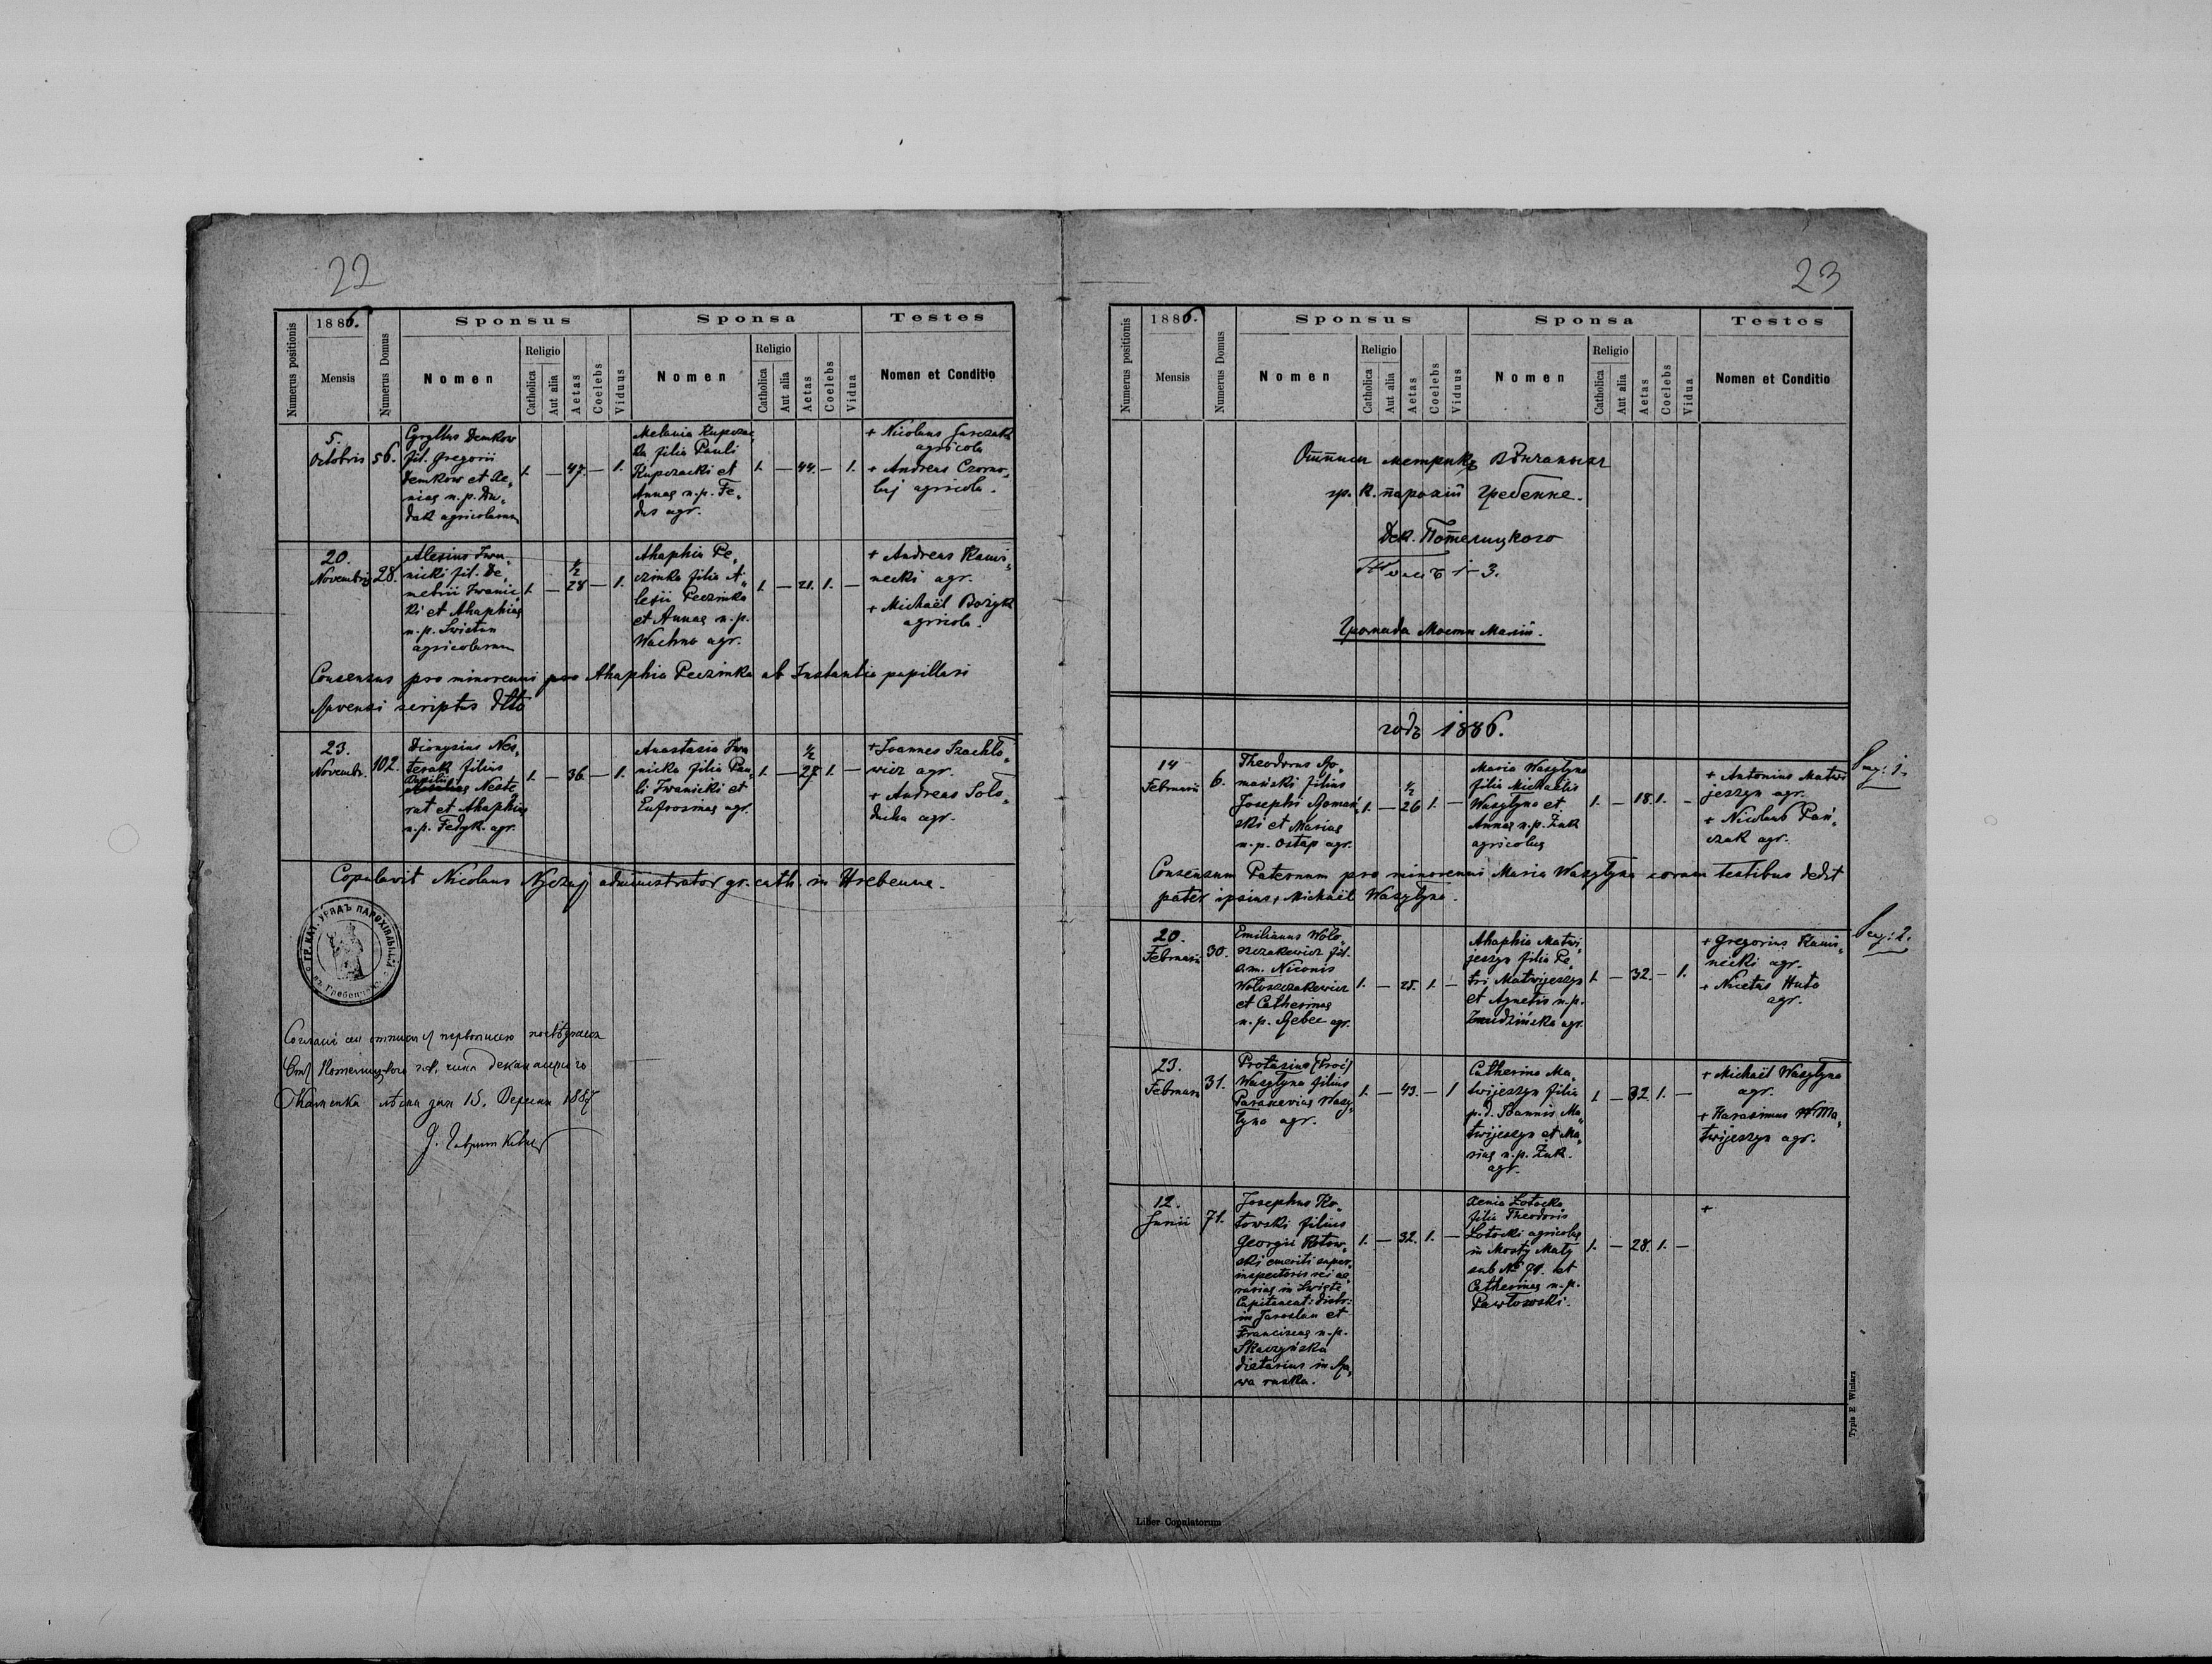 22
Numerus positionis
1886.
Mensis
Numerus Domus
Sponsus
Nomen
Religio
Catholica
Aut alia
Aetas
Coelebs
Viduus
Sponsa
Nomen
Religio
Catholica
Aut alia
Aetas
Coelebs
Vidua
Testes
Nomen et Conditio
5.
Octobris
56.
Cyryllus Demkow
fil. Gregorii
Demkow et Xe„
niae n. p. Du„
dak agricolarum
1. — 47. — 1.
Melania Kupczac„
ka filia Pauli
Kupczacki et
Annae n. p. Fe„
dus agr.
1. — 44. — 1.
+ Nicolaus
agricola
+ Andreas Czorno„
baj agricola.
20.
Novembris
28.
Alexius Iwa„
nicki fil. De„
metrii Iwanic„
ki et Ahaphiae
n. p. Swietan
agricolarum
1. — 28 ½ — 1.
Ahaphia Pe„
czinka filia A„
lexii Peczinka
et Annae n. p.
Wachna agr.
1. — 21. 1. —
+ Andreas Kami„
necki agr.
+ Michaël Bozyk
agricola.
Consensus pro minorenni pro Ahaphia Peczinka ab Instantia pupillari
scriptus dtto
23.
Novembr.
102.
Dionysius Nes„
terak filius
Neste
rak et Ahaphiae
n. p. Fedyk. agr.
1. — 36. — 1.
Anastasia Iwa
nicka filia Pau„
li Iwanicki et
Eufrosinae agr.
1. — 27. ½ 1. —
+ Joannes Szachło„
wicz agr.
+ Andreas Soło„
ducha agr.
Copulavit Nicolaus Nyczaj administrator gr. cath. in Hrebenne.
ГР. КАТ. УРЯДЪ ПАРОХІЯЛЬНЫЙ
въ Гребенномъ
15. 1887
23
Numerus positionis
1886.
Mensis
Numerus Domus
Sponsus
Nomen
Religio
Catholica
Aut alia
Aetas
Coelebs
Viduus
Sponsa
Nomen
Religio
Catholica
Aut alia
Aetas
Coelebs
Vidua
Testes
Nomen et Conditio
Отписи метрикъ вѣнчаныхъ
гр. к. парохіи Гребенне.
Дек. Потелицкого
1–3.
Громада Мосты Маліи.
годъ 1886.
14
Februarii
6.
Theodorus Ro„
mański filius
Josephi Romań„
ski et Mariae
n. p. Ostap agr.
1. — 26 ½ 1. —
Maria Waszłyna
filia Michaelis
Waszłyna et
Annae n. p. Żuk
agricolae
1. — 18. 1. —
+ Antonius Matwi
jeszyn agr.
+ Nicolaus Pań„
czak agr.
1.
Consensum Paternum pro minorenni Maria Waszłyna coram testibus dedit
pater ipsius, Michaël Waszłyna.
20.
Februarii
30.
Emilianus Woło„
szczakewicz fil.
Niconis
Wołoszczakewicz
et Catherinae
n. p. Rebec agr.
1. — 25. 1. —
Ahaphia Matwi„
jeszyn filia Pe„
tri Matwijeszyn
et Agnetis n. p.
Zmudzińska agr.
1. — 32. — 1.
+ Gregorius Kami„
necki agr.
+ Nicetas Huto
agr.
2.
23.
Februarii
31.
Protasius (Proć)
Waszłyna filius
Parasceviae Wasz„
łyna agr.
1. — 43. — 1
Catherina Ma„
twijeszyn filia
p. d. Joannis Ma„
twijeszyn et Ma„
riae n. p. Żuk.
agr.
1. — 32 1. —
+ Michaël Waszłyna
agr.
+ Harasimus Ma„
twijeszyn agr.
12.
Junii
71.
Josephus Ko„
towski filius
Georgii Kotow„
ski emeriti super„
inspectoris rei ae„
rariae in Swięte
Capitaneat: distr:
in Jaroslau et
Franciscae n. p.
Skarżyńska
dietarius in Ra„
wa ruska.
1. — 32. 1. —
Xenia Łotocka
filia Theodoris
Łotocki agricolae
in Mosty Małe
sub № 71. et
Catherinae n. p.
Pawłowski.
1. — 28. 1. —
+
Typis E Winiarz
Liber Copulatorum